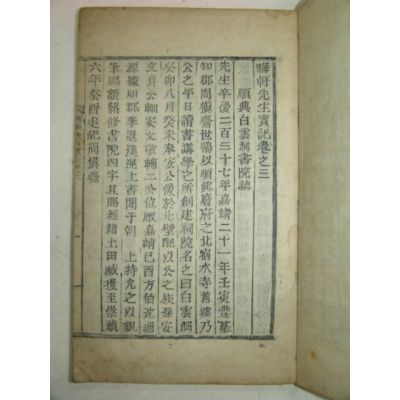 晦軒先生實記卷之三
順興白雲洞書院誌
先生卒後二百三十七年嘉靖二十一年壬寅豐基
知郡周愼齋世鵬以順興廢府之北宿水寺舊墟乃
公之平日讀書講學之所創建祠院名之曰白雲洞
癸卯八月癸未奉安公像於北壁配以公之族孫安
文貞公軸安文敬輔二公位版嘉靖己酉方伯沈通
源據知郡李退溪滉上書聞于朝 上特允之以親
筆賜額紹修書院四字且賜經籍土田臧獲至崇禎
六年癸酉追祀周愼齋